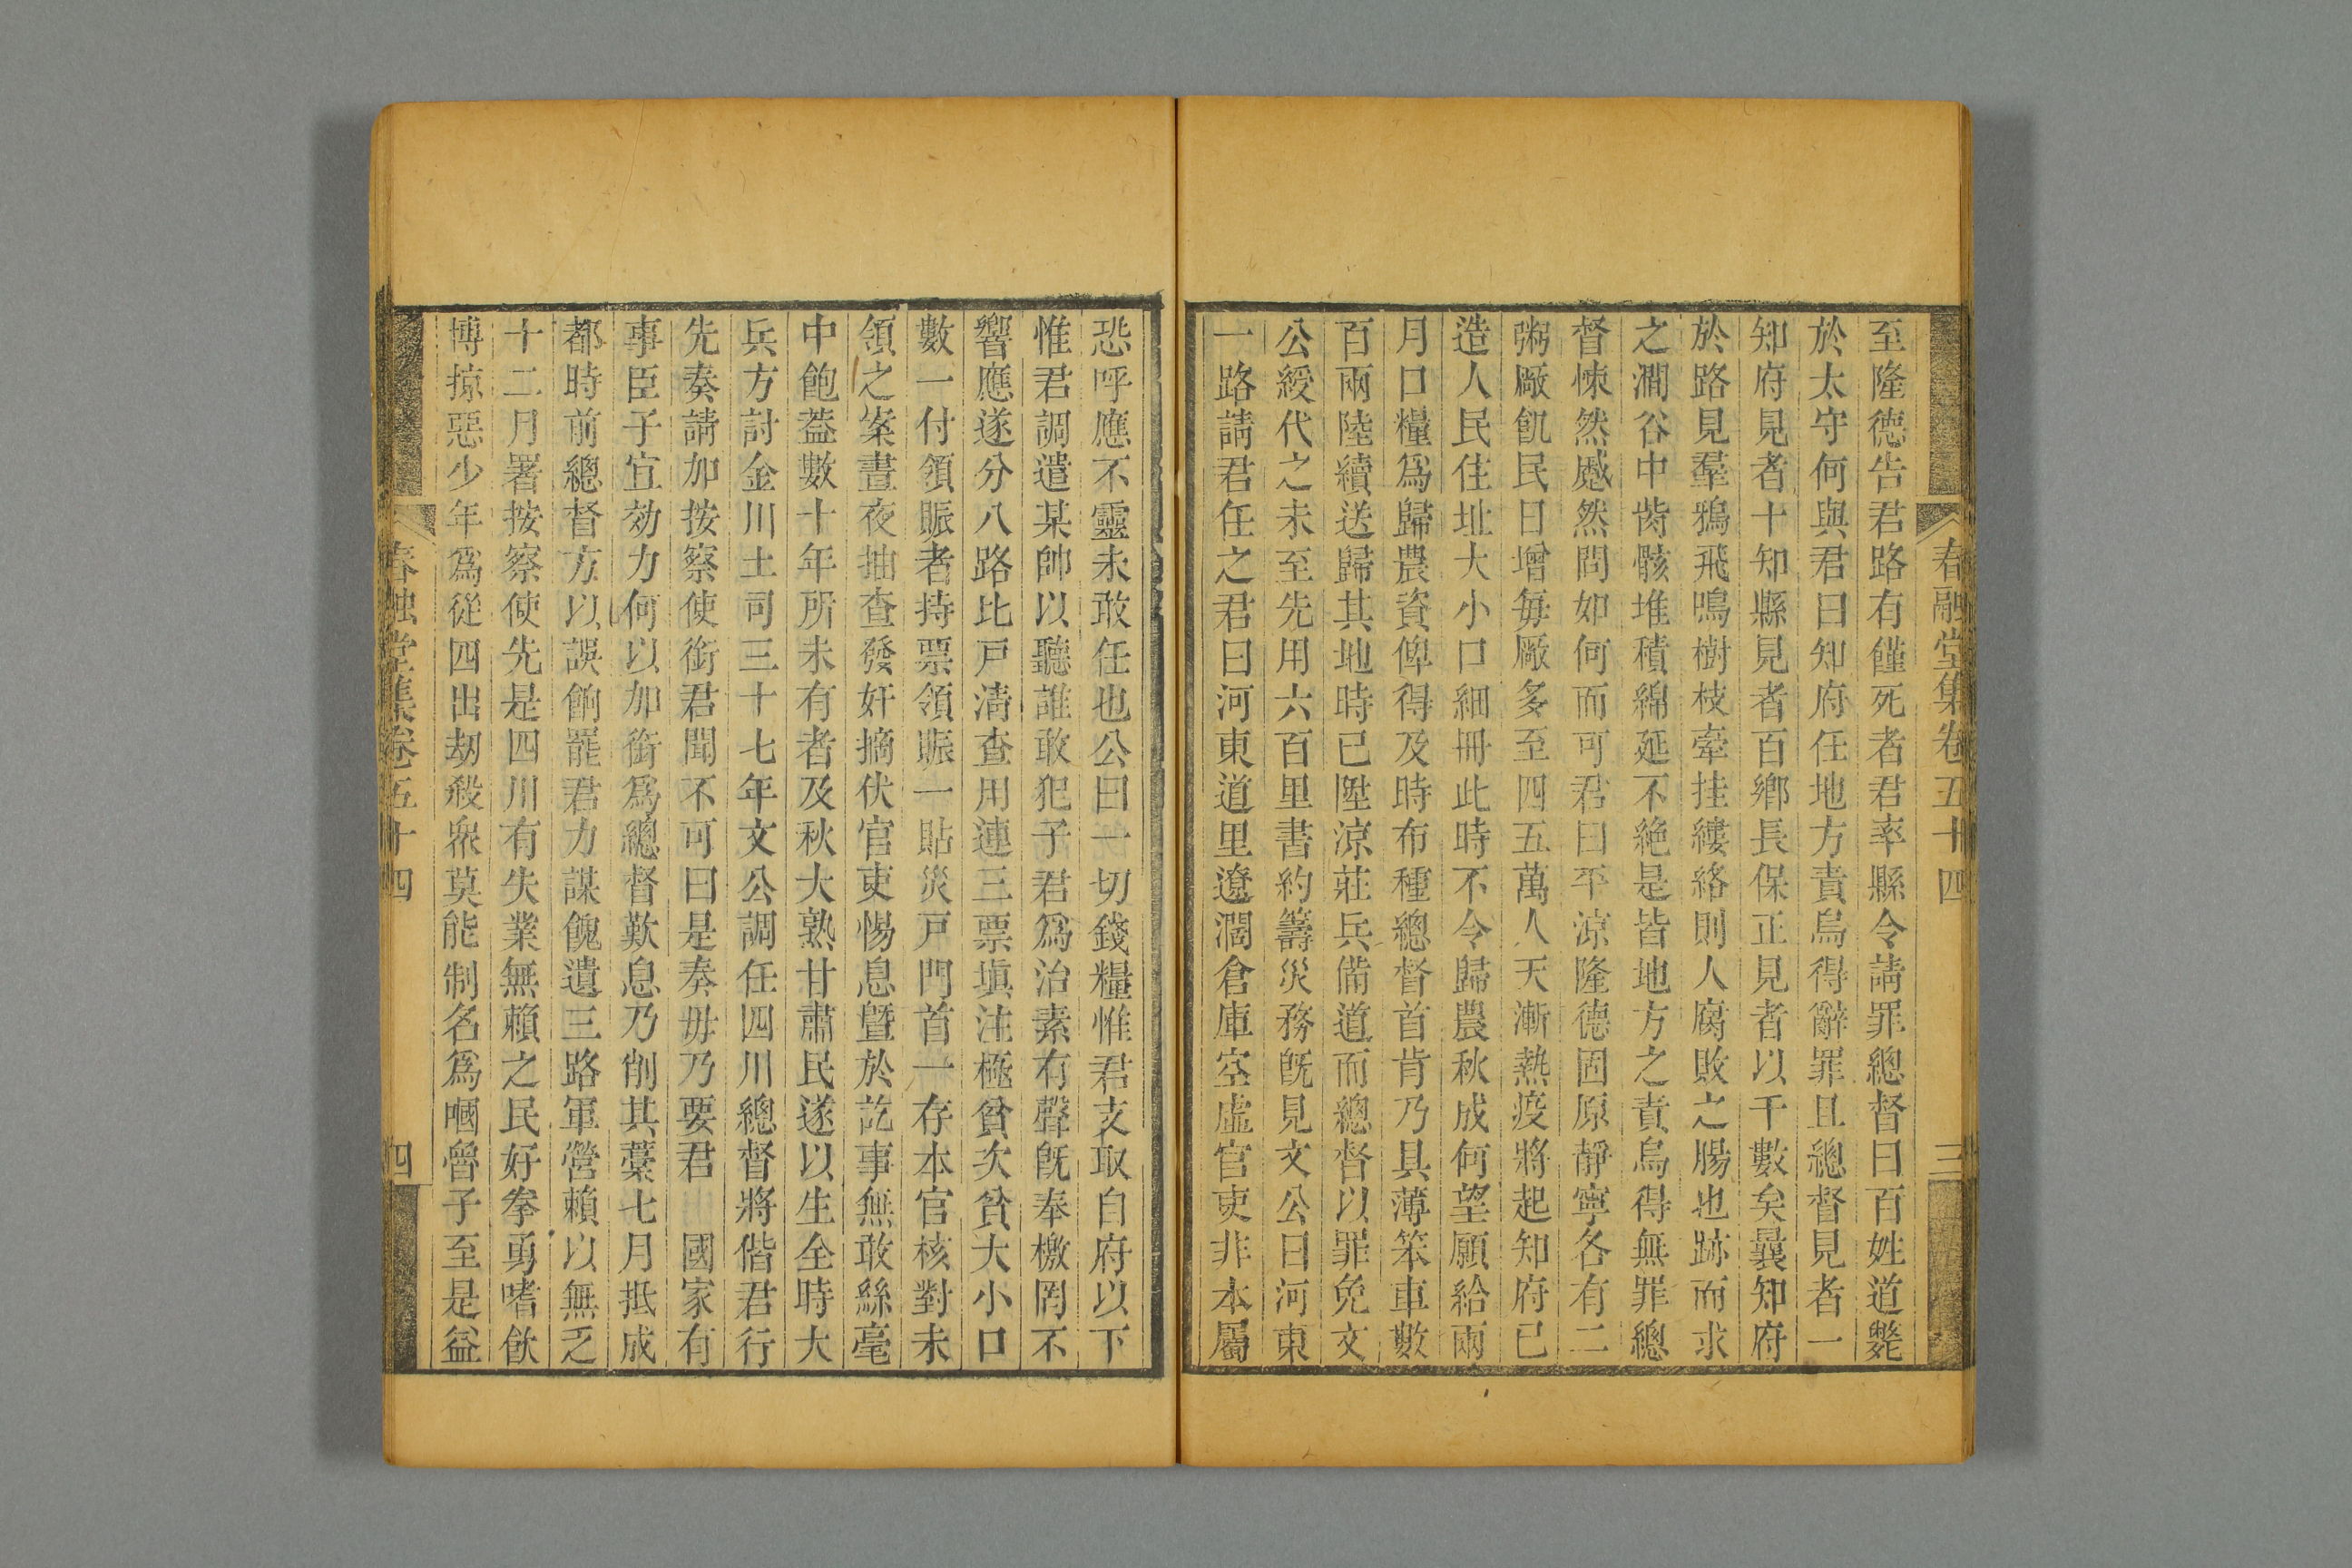 春融堂集卷五十四
三
至隆德告君路有饉死者君率縣令請罪總督曰百姓道斃
於太守何與君曰知府任地方責烏得辭罪且總督見者一
知府見者十知縣見者百鄉長保正見者以千數矣曩知府
於路見羣鴉飛鳴樹枝牽挂縷絡則人腐敗之腸也跡而求
之澗谷中胔骸堆積綿延不絶是皆地方之責烏得無罪總
督悚然慼然問如何而可君曰平涼隆德固原靜寧各有二
粥厰飢民日增每厰多至四五萬人天漸熱疫將起知府已
造人民住址大小口細冊此時不令歸農秋成何望願給兩
月口糧爲歸農資俾得及時布種總督首肯乃具薄笨車數
百兩陸續送歸其地時已陞涼莊兵備道而總督以罪免文
公綬代之未至先用六百里書約籌災務旣見文公曰河東
一路請君任之君曰河東道里遼濶倉庫空虛官吏非本屬
恐呼應不靈未敢任也公曰一切錢糧惟君支取自府以下
惟君調遣某帥以聽誰敢犯子君爲治素有聲旣奉檄罔不
響應遂分八路比戸清查用連三票塡注極貧次貧大小口
數一付領賑者持票領賑一貼災戸門首一存本官核對未
領之案晝夜抽查發奸摘伏官吏惕息曁於訖事無敢絲毫
中飽葢數十年所未有者及秋大熟甘肅民遂以生全時大
兵方討金川土司三十七年文公調任四川總督將偕君行
先奏請加按察使銜君聞不可曰是奏毋乃要君 國家有
事臣子宜効力何以加銜爲總督歎息乃削其藁七月抵成
都時前總督方以誤餉罷君力謀餽遺三路軍營賴以無乏
十二月署按察使先是四川有失業無賴之民好拳勇嗜飮
博掠惡少年爲從四出刼殺衆莫能制名爲嘓嚕子至是益
春融堂集卷五十四
四